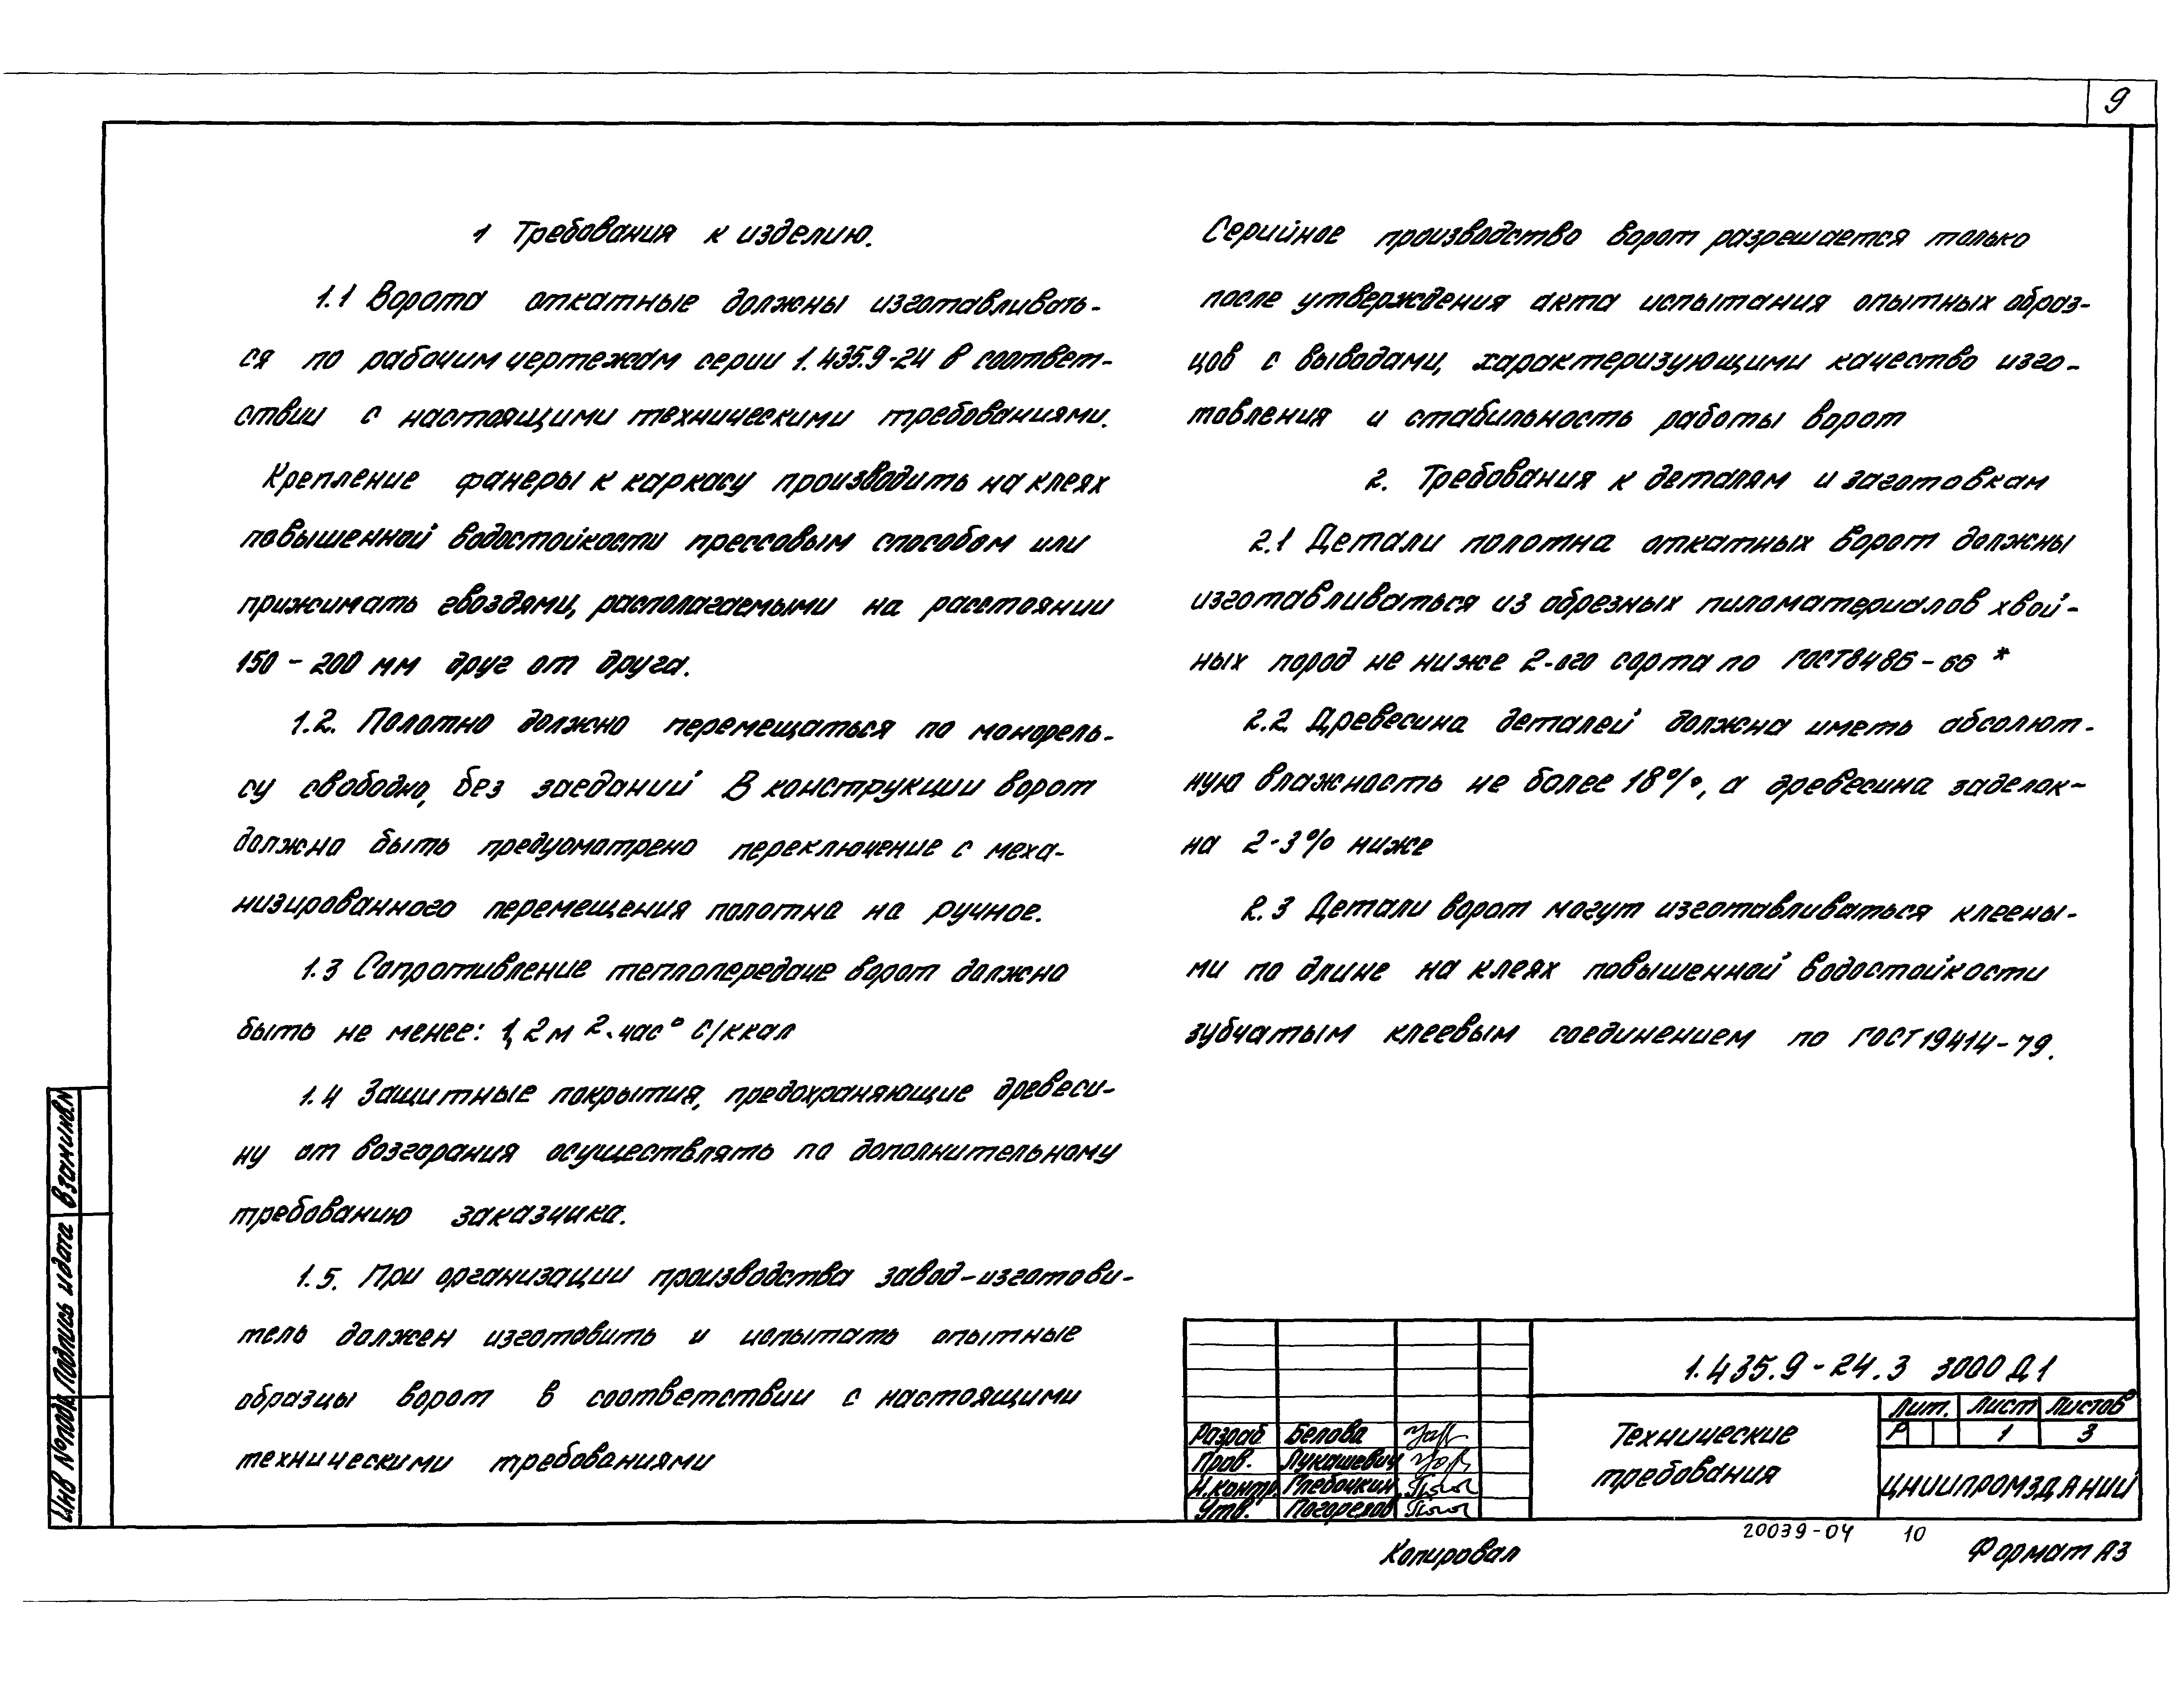 9
1 Требования к изделию.
1.1 Ворота откатные должны изготавливать-
ся по рабочим чертежам серии 1.435.9-24 в соответ-
ствии с настоящими техническими требованиями.
Крепление фанеры к каркасу производить на клеях
повышенной водостойкости прессовым способом или
прижимать гвоздями, располагаемыми на расстоянии
150 - 200 мм друг от друга.
1.2. Полотно должно перемещаться по монорель-
су свободно, без заеданий В конструкции ворот
должно быть предусмотрено переключение с меха-
низированного перемещения полотна на ручное.
1.3 Сопротивление теплопередаче ворот должно
быть не менее: 1,2 м 2. час° С/ккал
1.4 Защитные покрытия, предохраняющие древеси-
ну от возгорания осуществлять по дополнительному
требованию заказчика.
1.5. При организации производства завод-изготови-
тель должен изготовить и испытать опытные
образцы ворот в соответствии с настоящими
техническими требованиями
Серийное производство ворот разрешается только
после утверждения акта испытания опытных образ-
цов с выводами, характеризующими качество изго-
товления и стабильность работы ворот
2. Требования к деталям и заготовкам
2.1 Детали полотна откатных ворот должны
изготавливаться из обрезных пиломатериалов хвой-
ных пород не ниже 2-ого сорта по ГОСТ 8486-66 *
2.2. Древесина деталей должна иметь абсолют-
ную влажность не более 18%, а древесина заделок-
на 2-3% ниже
2.3 Детали ворот могут изготавливаться клеены-
ми по длине на клеях повышенной водостойкости
зубчатым клеевым соединением по ГОСТ 19414-79.
Взам.инв.N
Подпись и дата
Инв № подл.
1.435.9-24.3 3000 Д1
Разраб Белова
Пров. Лукашевич
Н.контр. Глебочкин
Утв. Погорелов
Технические
требования
Лит. Лист Листов
Р 1 3
ЦНИИПРОМЗДАНИЙ
20039-04 10
Копировал
Формат А3